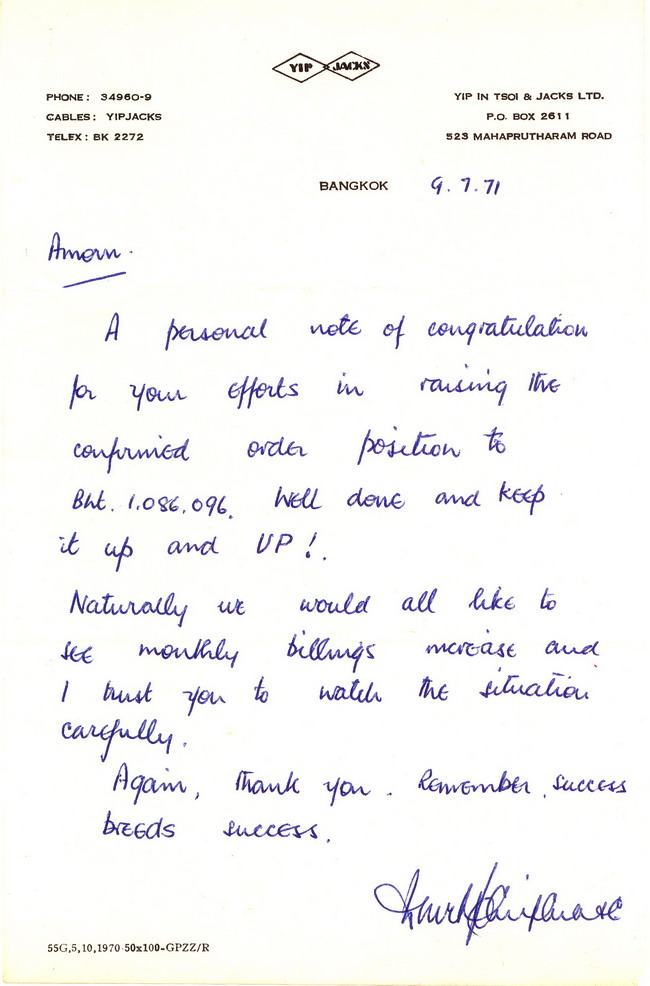 YIP JACKS
PHONE: 34960-9
CABLES: YIPJACKS
TELEX: BK 2272
YIP IN TSOI & JACKS LTD.
P.O. BOX 2611
523 MAHAPRUTHARAM ROAD
BANGKOK 9.7.71
Amorn.
A personal note of congratulation
for your efforts in raising the
confirmed order position to
Bht. 1.086,096. Well done and keep
it up and UP!.
Naturally we would all like to
see monthly billings increase and
I trust you to watch the situation
carefully.
Again, thank you. Remember, success
breeds success.
55G,5,10,1970-50x100-GPZZ/R